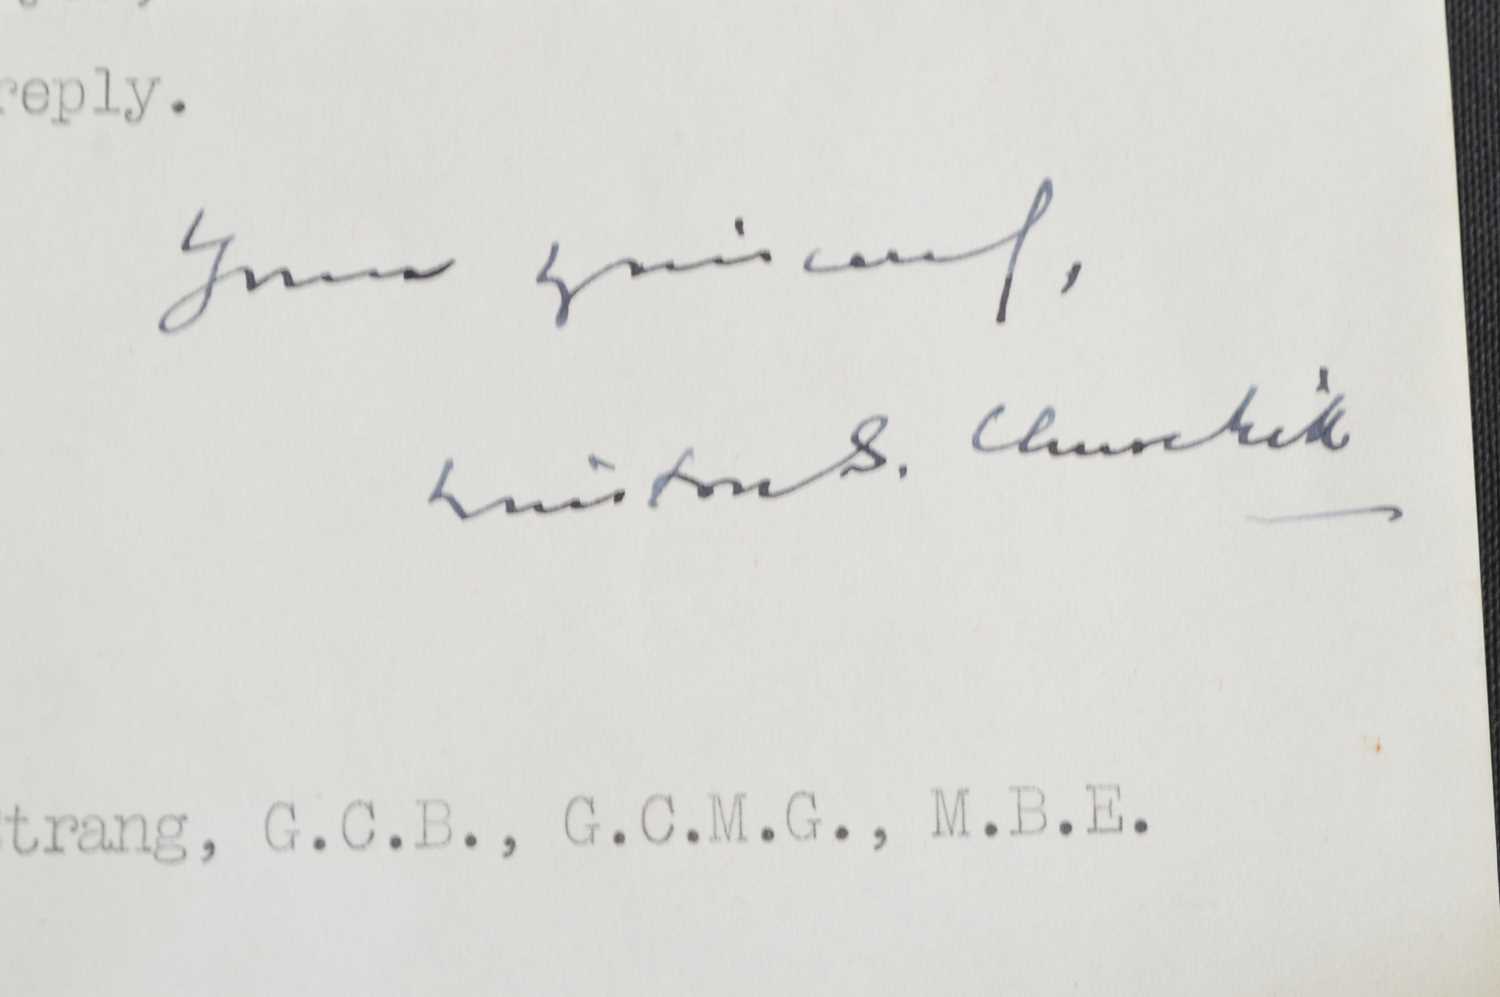 reply.
Yours sincerely,
Winston S. Churchill
trang, G.C.B., G.C.M.G., M.B.E.